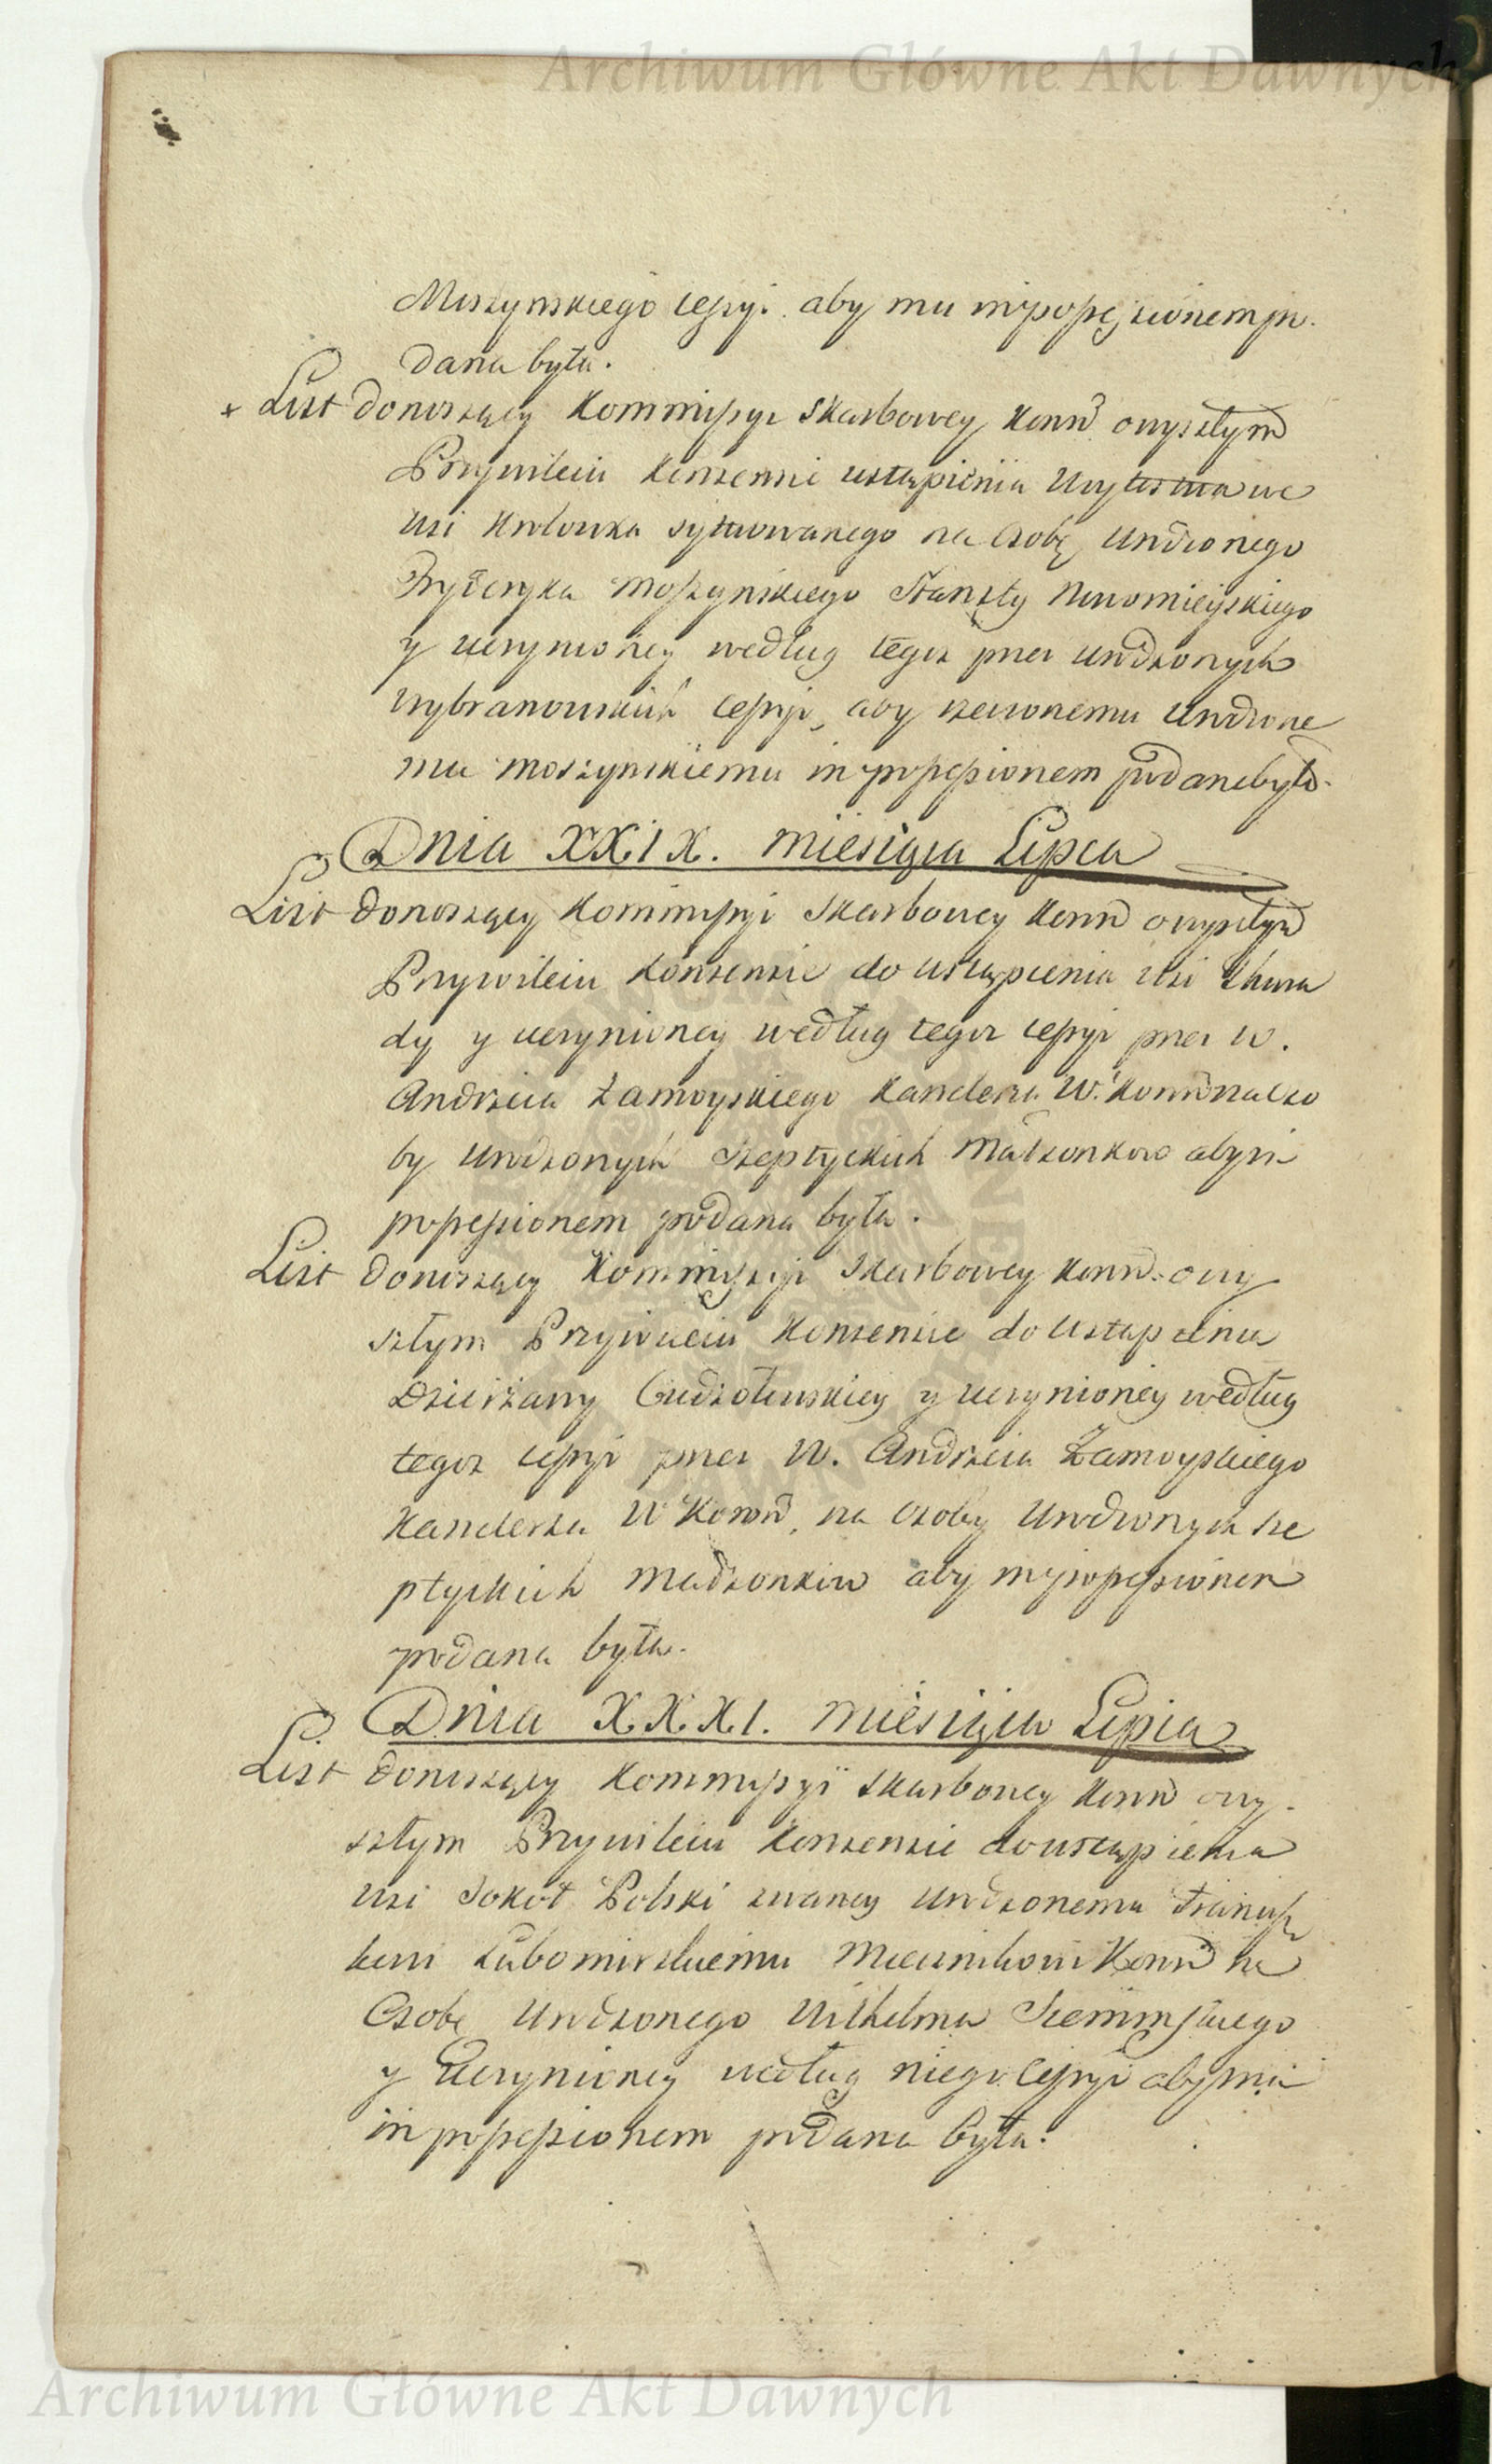 Archiwum Główne Akt Dawnych
Moszynskiego cessyi. aby mu in possessionem po.
dana była.
x List donoszący Kommissyi Skarbowey Koron̄ o wyszłym
Przywileiu Konsensie ustąpienia Woytostwa we
wsi Krolowka sytuowanego na Osobę Urodzonego
Fryderyka Moszynskiego Starosty Nowomieyskiego
y uczynioney według tegoz przez Urodzonych
Wybranowskich cessyi, aby rzeczonemu Urodzone
mu Moszynskiemu in possessionem podane było.
Dnia XXIX. Miesiąca Lipca
List donoszący Kommissyi Skarbowey Koron̄ o wyszłym
Przywileiu Konsensie do ustąpienia wsi
dy y uczynioney według tegoz cessyi przez W.
Andrzeia Zamoyskiego Kanclerza W. Koron̄ na Oso
by Urodzonych Szeptyckich Małzonkow aby in
possessionem podana była.
List donoszący Kommissyi Skarbowey Koron̄. o wy
szłym Przywileiu Konsensie do ustąpienia
Dzierżawy y uczynioney według
tegoz cessyi przez W. Andrzeia Zamoyskiego
Kanclerza W Koron̄, na Osoby Urodzonych Sze
ptyckich Małzonkow aby in possessionem
podana była.
Dnia XXXI. Miesiąca Lipca
List donoszący Kommissyi Skarbowey Koron̄ o wy.
szłym Przywileiu Konsensie do ustąpienia
wsi Sokoł Polski zwaney Urodzonemu Francisz
kowi Lubomirskiemu Miecznikowi Koron̄ na
Osobę Urodzonego Wilhelma Siemińskiego
y Uczynioney według niego Cessyi aby mu
in possessionem podana była.
Archiwum Główne Akt Dawnych